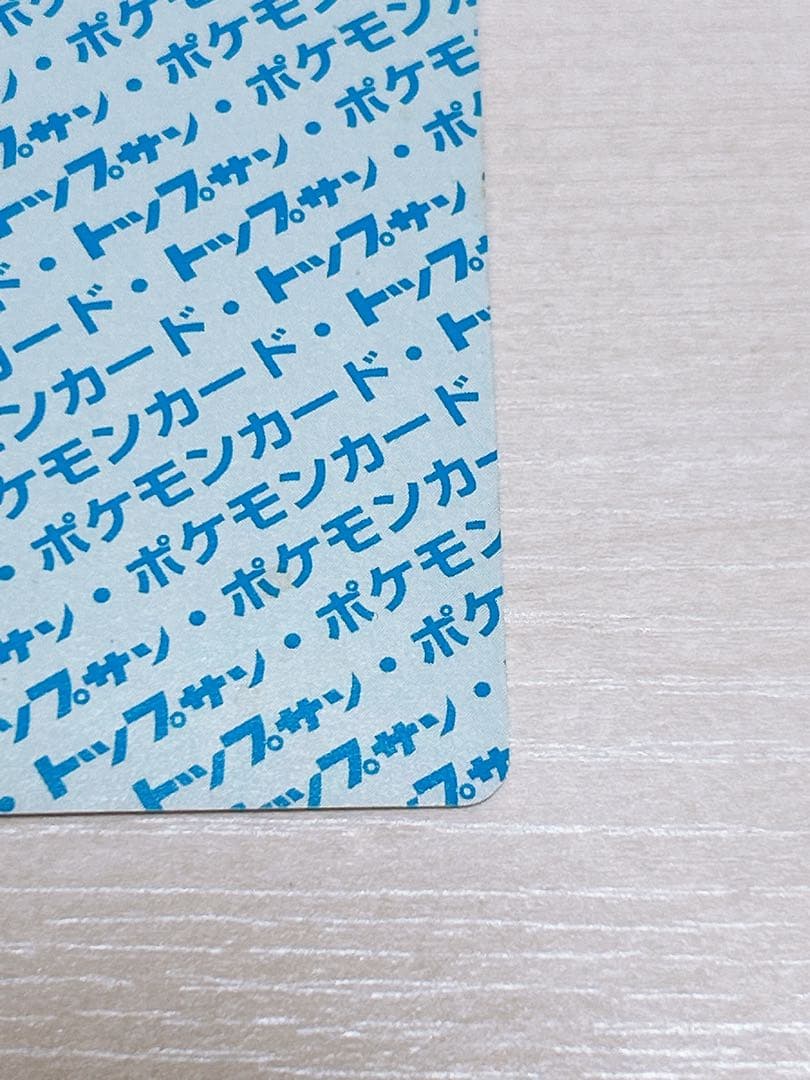 ン・ポケモ
プサン・ポケモンカ
トップサン・ポケモンカ
ド・トップサン・ポケモ
カード・トップサン・ポ
ンカード・トップサン・
ケモンカード・トップサ
・ポケモンカード・ト
サン・ポケモンカード
ップサン・ポケモンカー
トップサン・ポケモン
・トップサン・ポケ
トップサン・
トップサ